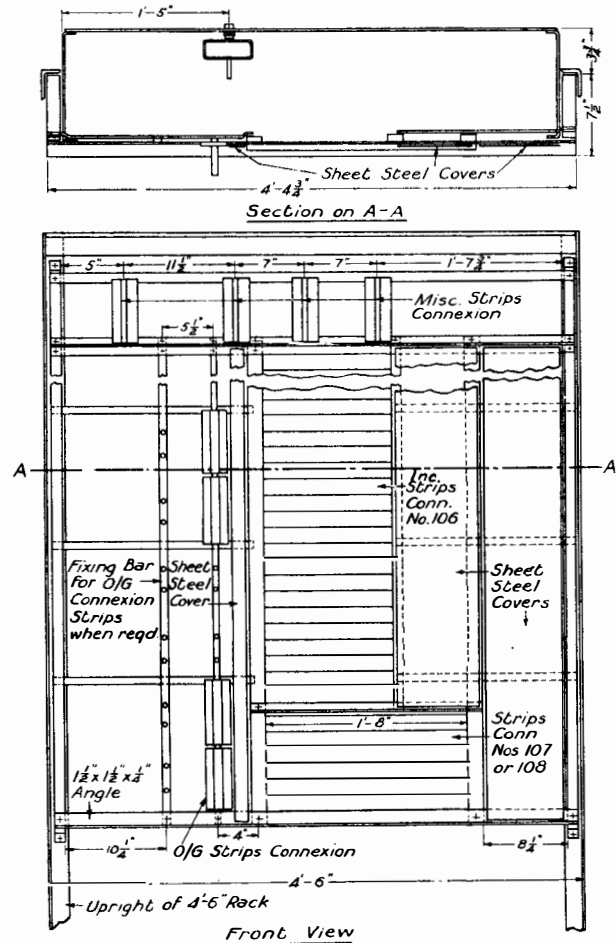 1'-5"
3 3/4"
7 1/2"
Sheet Steel Covers
4'-4 3/4"
Section on A-A
5"
11 1/2"
7"
7"
1'-7 3/4"
Misc. Strips
Connexion
5 1/2"
A
A
Inc.
Strips
Conn.
No.106
Fixing Bar
For O/G
Connexion
Strips
when reqd.
Sheet
Steel
Cover
Sheet
Steel
Covers
1'-8"
Strips
Conn
Nos 107
or 108
1 1/2" x 1 1/2" x 1/4"
Angle
4"
10 1/4"
O/G Strips Connexion
8 1/4"
4'-6"
Upright of 4'-6" Rack
Front View